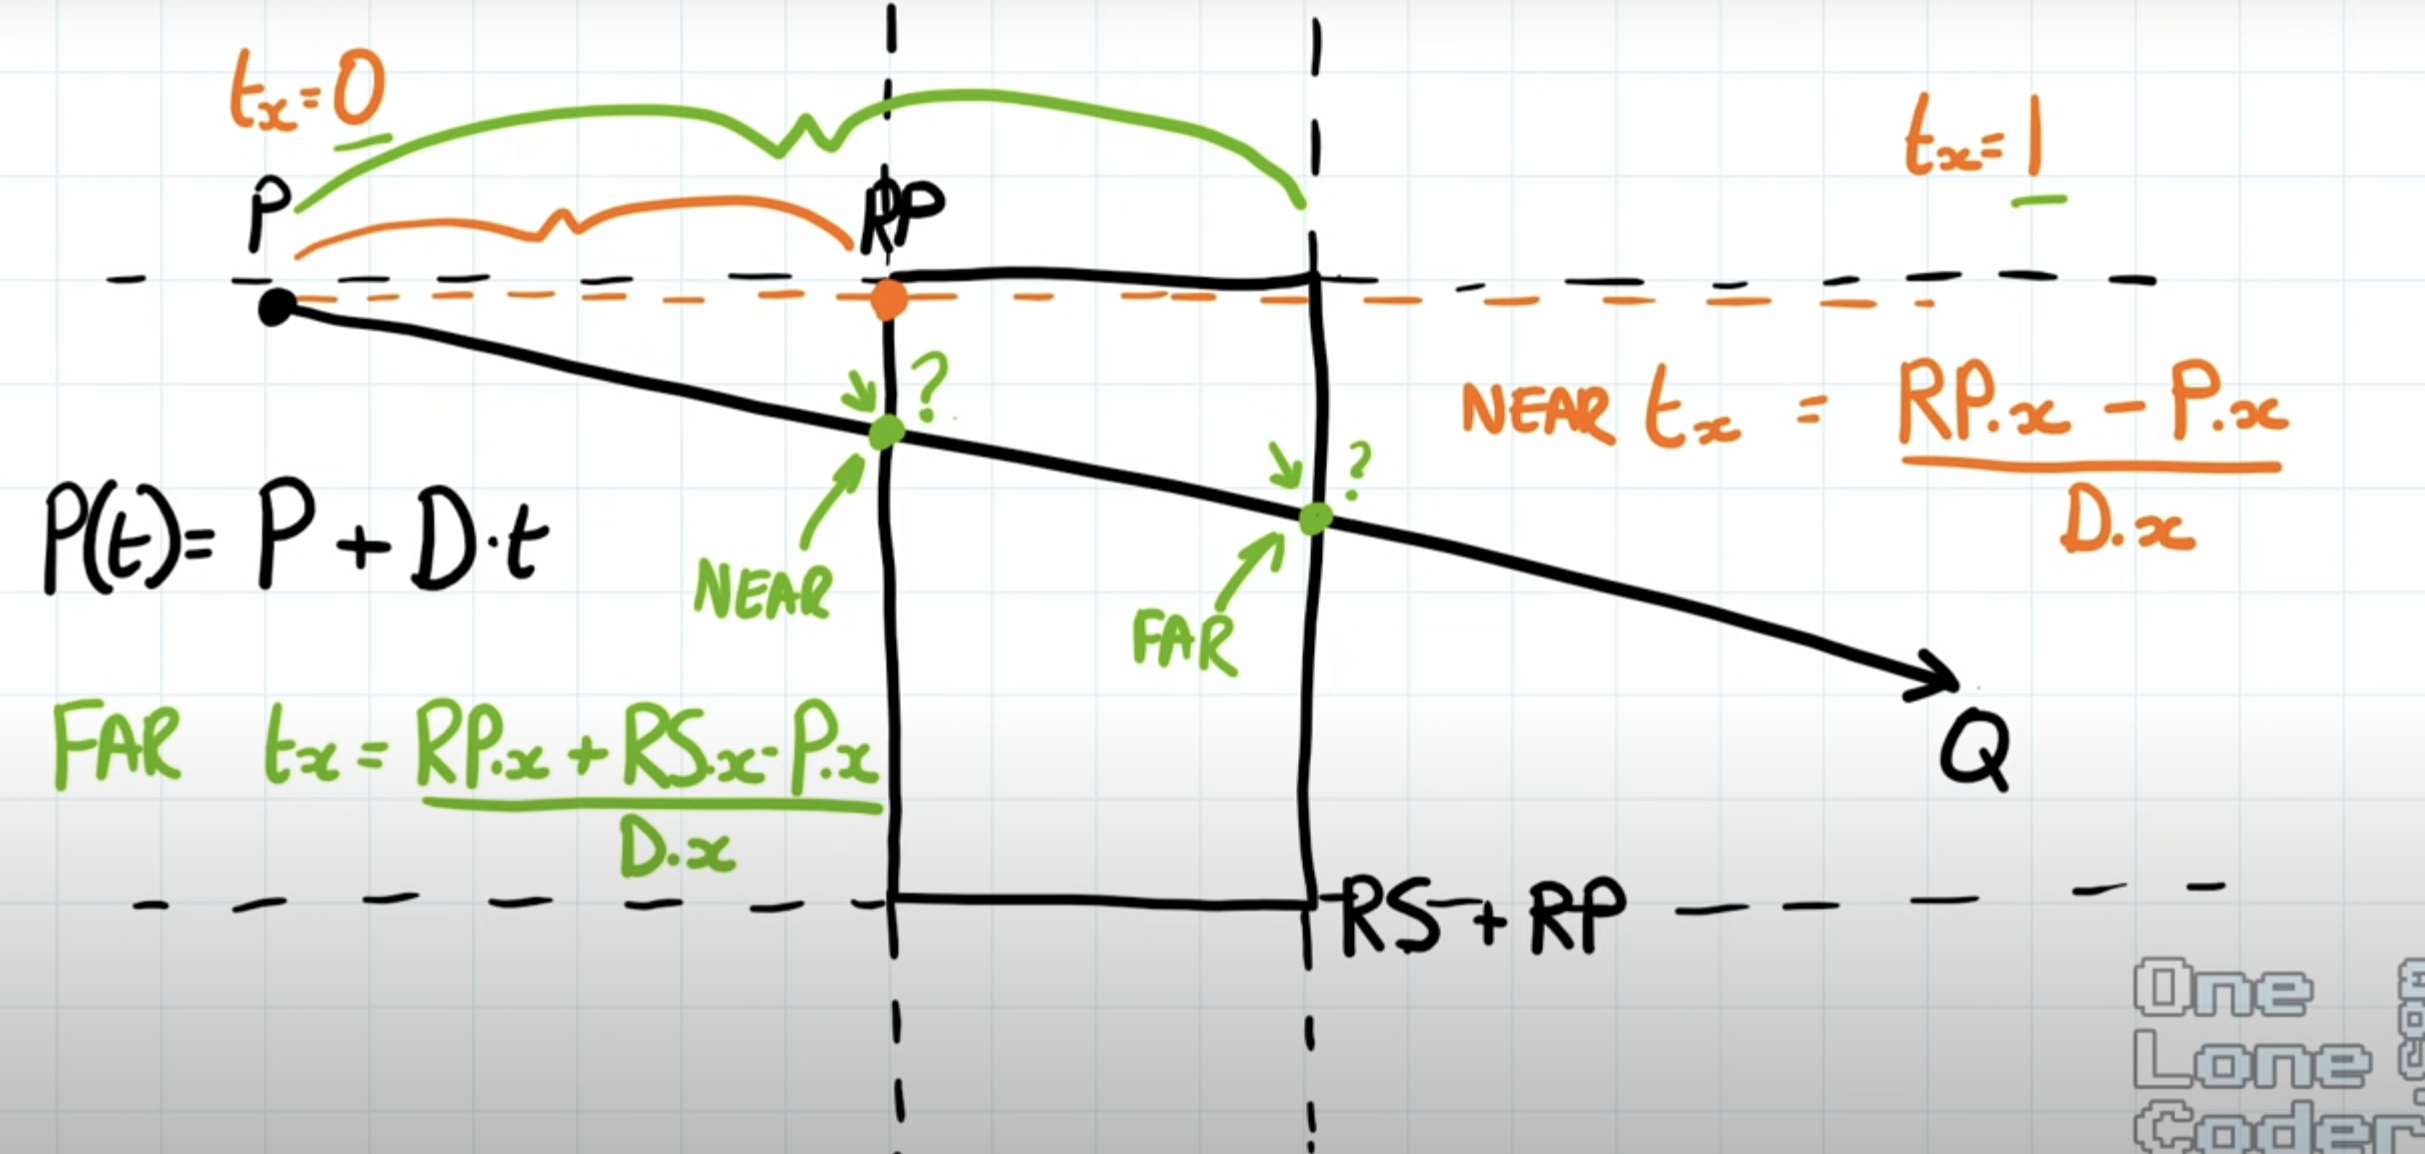 tx = 0
tx = 1
P
RP
?
NEAR tx = RP.x - P.x
D.x
?
P(t) = P + D·t
NEAR
FAR
FAR tx = RP.x + RS.x - P.x
D.x
Q
RS + RP
One
Lone
Coder